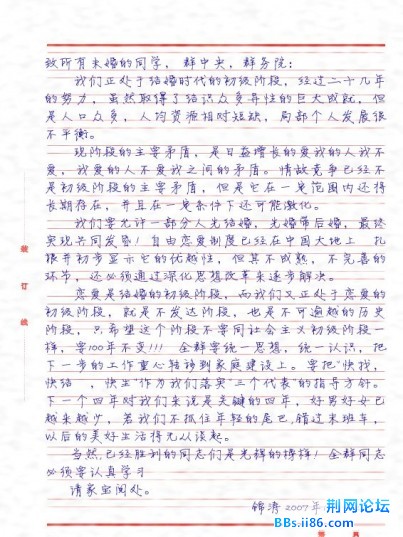 致所有未婚的同学，群中央，群务院：
我们正处于结婚时代的初级阶段，经过二十九年
的努力，虽然取得了结识众多异性的巨大成就，但
是人口众多，人均资源相对短缺，局部个人发展很
不平衡。
现阶段的主要矛盾，是日益增长的爱我的人我不
爱，我爱的人不爱我之间的矛盾。情敌竞争已经不
是初级阶段的主要矛盾，但是它在一定范围内还将
长期存在，并且在一定条件下还可能激化。
我们要允许一部分人先结婚，先婚带后婚，最终
实现共同发昏！自由恋爱制度已经在中国大地上 扎
根并初步显示它的优越性，但其不成熟，不完善的
环节，还必须通过深化思想改革来逐步解决。
恋爱是结婚的初级阶段，而我们又正处于恋爱的
初级阶段，就是不发达阶段，也是不可逾越的历史
阶段，只希望这个阶段不要同社会主义初级阶段一
样，要100年不变！！！全群要统一思想，统一认识，把
下一步的工作重心转移到家庭建设上。要把“快找，
快结 ，快生”作为我们落实“三个代表”的指导方针。
下一个四年对我们来说是关键的四年，好男好女已
越来越少，若我们不抓住年轻的尾巴，错过末班车，
以后的美好生活将无从谈起。
当然，已经胜利的同志们是光辉的榜样！全群同志
必须要认真学习
请家宝阅处。
锦涛2007年
装
订
线
荆网论坛
BBs.ii86.com